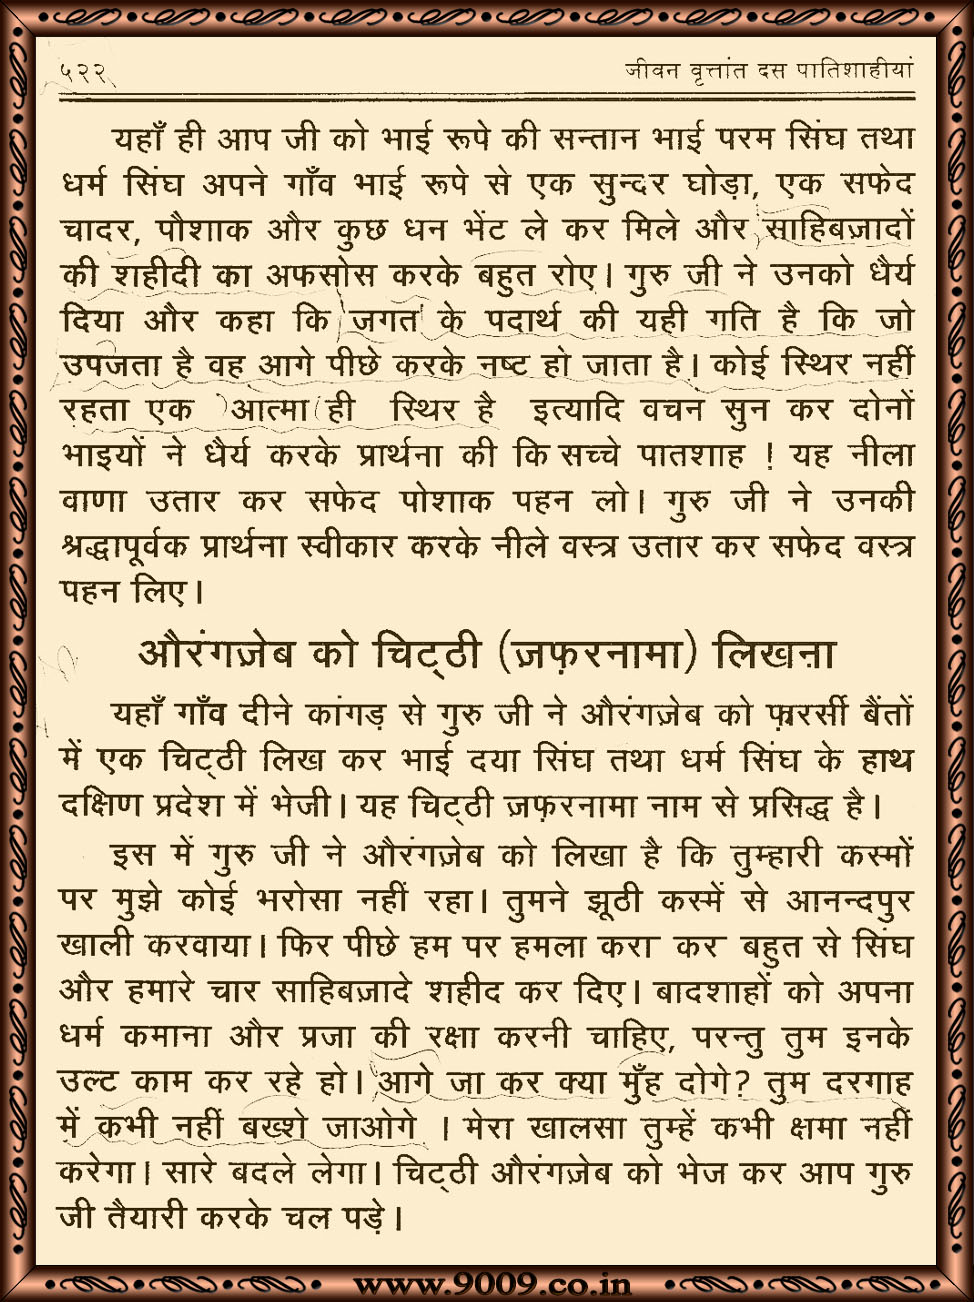 ५२२ जीवन वृत्तांत दस पातिशाहीयां
यहाँ ही आप जी को भाई रूपे की सन्तान भाई परम सिंघ तथा
धर्म सिंघ अपने गाँव भाई रूपे से एक सुन्दर घोड़ा, एक सफेद
चादर, पौशाक और कुछ धन भेंट ले कर मिले और साहिबज़ादों
की शहीदी का अफसोस करके बहुत रोए। गुरु जी ने उनको धैर्य
दिया और कहा कि जगत के पदार्थ की यही गति है कि जो
उपजता है वह आगे पीछे करके नष्ट हो जाता है। कोई स्थिर नहीं
रहता एक आत्मा ही स्थिर है इत्यादि वचन सुन कर दोनों
भाइयों ने धैर्य करके प्रार्थना की कि सच्चे पातशाह ! यह नीला
वाणा उतार कर सफेद पोशाक पहन लो। गुरु जी ने उनकी
श्रद्धापूर्वक प्रार्थना स्वीकार करके नीले वस्त्र उतार कर सफेद वस्त्र
पहन लिए।
औरंगज़ेब को चिट्ठी (ज़फ़रनामा) लिखना
यहाँ गाँव दीने कांगड़ से गुरु जी ने औरंगज़ेब को फ़ारसी बैंतों
में एक चिट्ठी लिख कर भाई दया सिंघ तथा धर्म सिंघ के हाथ
दक्षिण प्रदेश में भेजी। यह चिट्ठी ज़फ़रनामा नाम से प्रसिद्ध है।
इस में गुरु जी ने औरंगज़ेब को लिखा है कि तुम्हारी कस्मों
पर मुझे कोई भरोसा नहीं रहा। तुमने झूठी कस्में से आनन्दपुर
खाली करवाया। फिर पीछे हम पर हमला करा कर बहुत से सिंघ
और हमारे चार साहिबज़ादे शहीद कर दिए। बादशाहों को अपना
धर्म कमाना और प्रजा की रक्षा करनी चाहिए, परन्तु तुम इनके
उल्ट काम कर रहे हो। आगे जा कर क्या मुँह दोगे? तुम दरगाह
में कभी नहीं बख्शे जाओगे । मेरा खालसा तुम्हें कभी क्षमा नहीं
करेगा। सारे बदले लेगा। चिट्ठी औरंगज़ेब को भेज कर आप गुरु
जी तैयारी करके चल पड़े।
www.9009.co.in